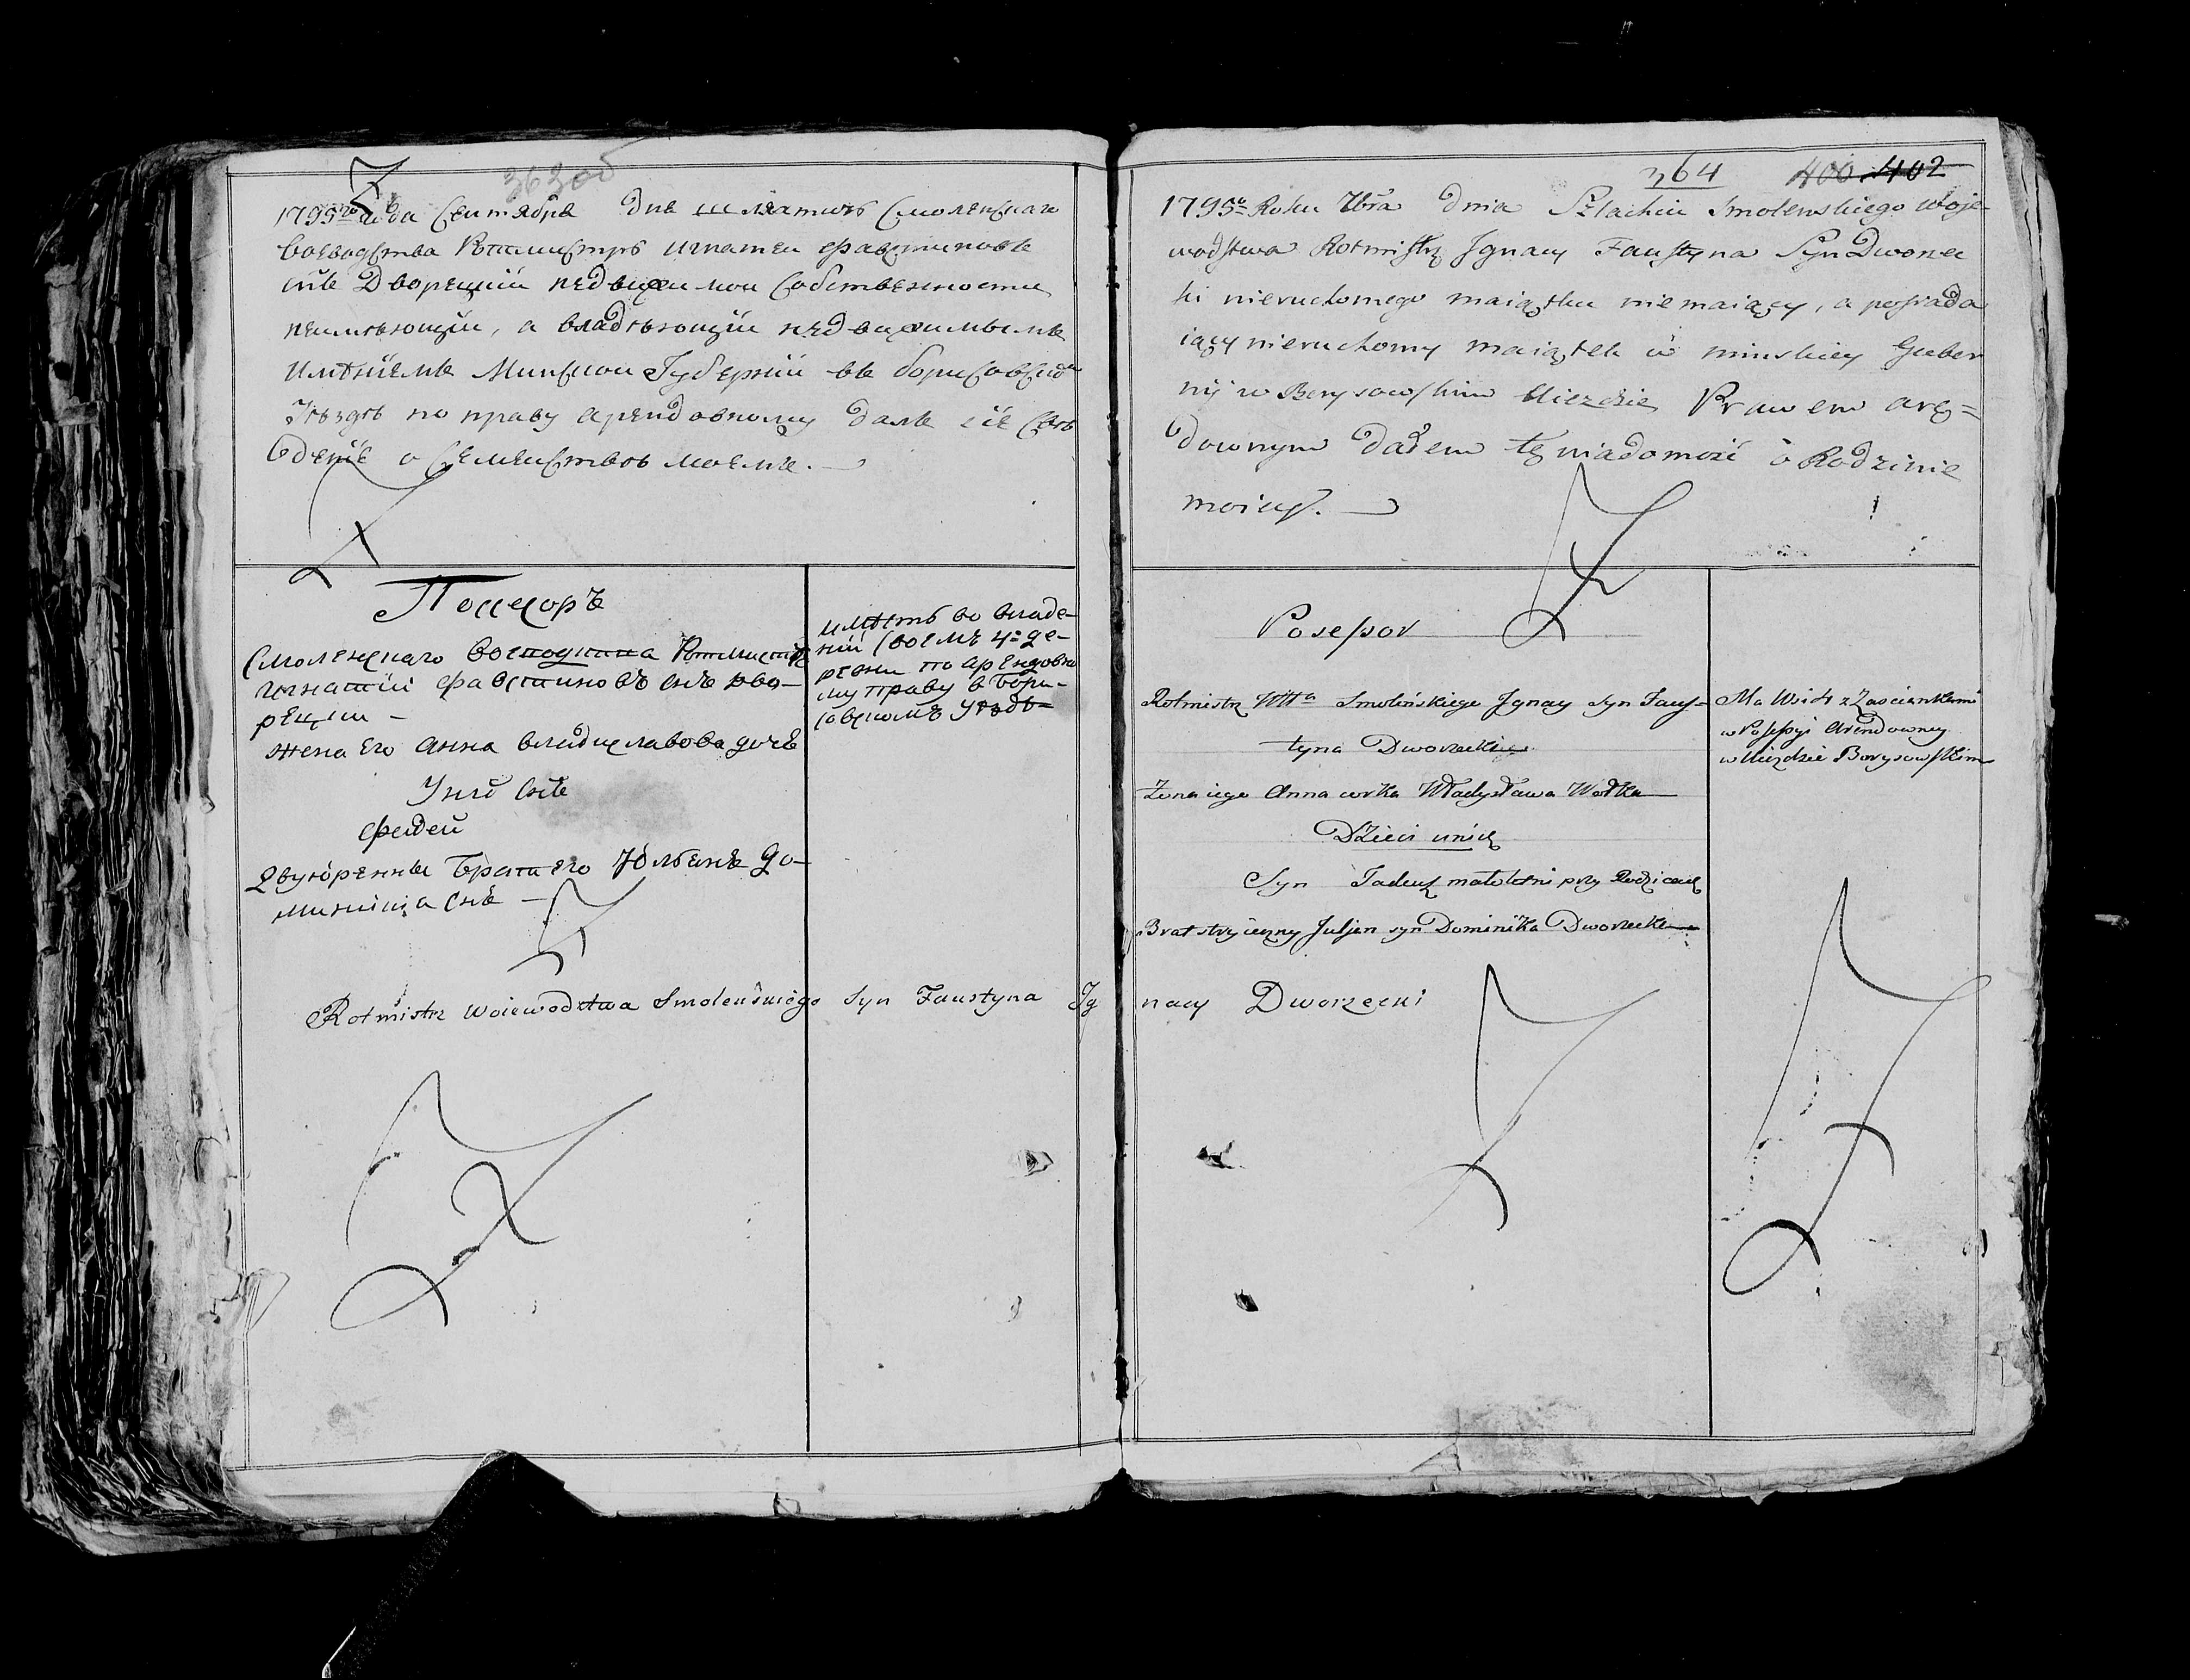 363об
1795го года Сентября дня шляхтичъ Смоленскаго
воеводства Ротмистръ Игнатей Фавстиновъ
снъ Дворецкій недвижимой собственности
неимѣющій, а владѣющій недвижимымъ
имѣніемъ Минской Губерніи въ борисовскомъ
уѣздѣ по праву арендовному далъ сіе свѣ
Денiе о семействѣ моемъ.
Посесоръ
Смоленскаго Ротмистръ
Игнатій Фавстиновъ снъ Дво-
рецкiи
жена его Анна владиславова дочь
У нiхъ снъ
Фадей
двуюренны братъ его Юльянъ До-
миника снъ
имѣетъ во владе-
нiи своемъ де-
ревни по арендовно
му праву в Бори-
совскомъ уѣздѣ
Rotmistrz Woiewodztwa Smolenskiego Syn Faustyna Ignacy Dworzecki
364 400 402
1795o Roku 7bra Dnia Szlachcic Smolenskiego woje-
wodstwa Rotmistrz Ignacy Faustyna Syn Dworzec
ki nieruchomego maiątku niemaiący, a possiada
iący nieruchomy maiątek w minskiey Guber
nij w Borysowskim Uiezdzie Prawem arę=
downym dałem tę wiadomość o Rodzinie
moiey.
Posessor
Rotmistrz Wttа Smolińskiego Ignacy syn Faus-
tyna Dworzecki
Żona iego Anna corka Władysława Wołka
Dzieci unich
Syn Tadeusz małoletni przy Rodzicach
Brat stryieczny Juljen syn Dominika Dworzecki
Ma Wioskę z Zaściankami
w Possessyi Arendowney
w Uiezdzie Borysowskim